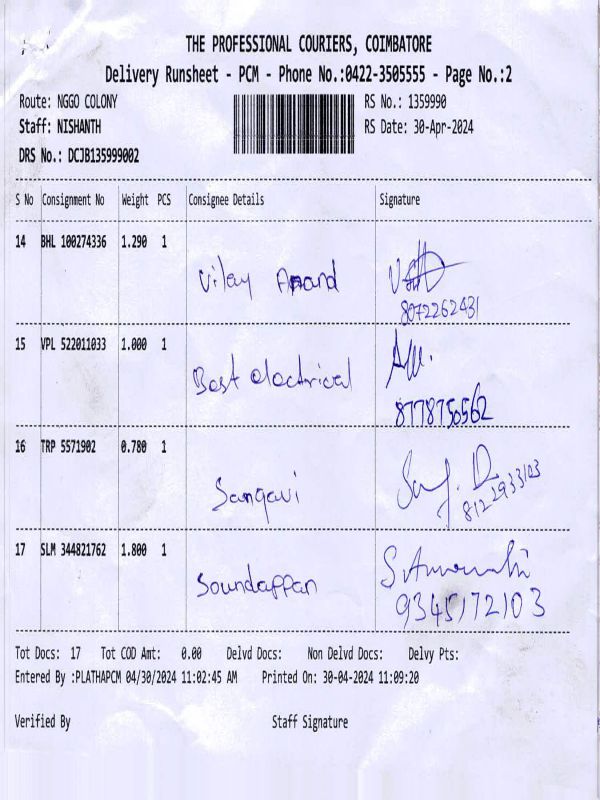 THE PROFESSIONAL COURIERS, COIMBATORE
Delivery Runsheet - PCM - Phone No.:0422-3505555 - Page No.:2
Route: NGGO COLONY RS No.: 1359990
Staff: NISHANTH RS Date: 30-Apr-2024
DRS No.: DCJB135999002
S No Consignment No Weight PCS Consignee Details Signature
14 BHL 100274336 1.290 1
Vijay Anand
8072262431
15 VPL 522011033 1.000 1
Best electrical
8778750562
16 TRP 5571902 0.780 1
Sangavi
8122933103
17 SLM 344821762 1.800 1
Soundappan
9345172103
Tot Docs: 17 Tot COD Amt: 0.00 Delvd Docs: Non Delvd Docs: Delvy Pts:
Entered By :PLATHAPCM 04/30/2024 11:02:45 AM Printed On: 30-04-2024 11:09:20
Verified By Staff Signature